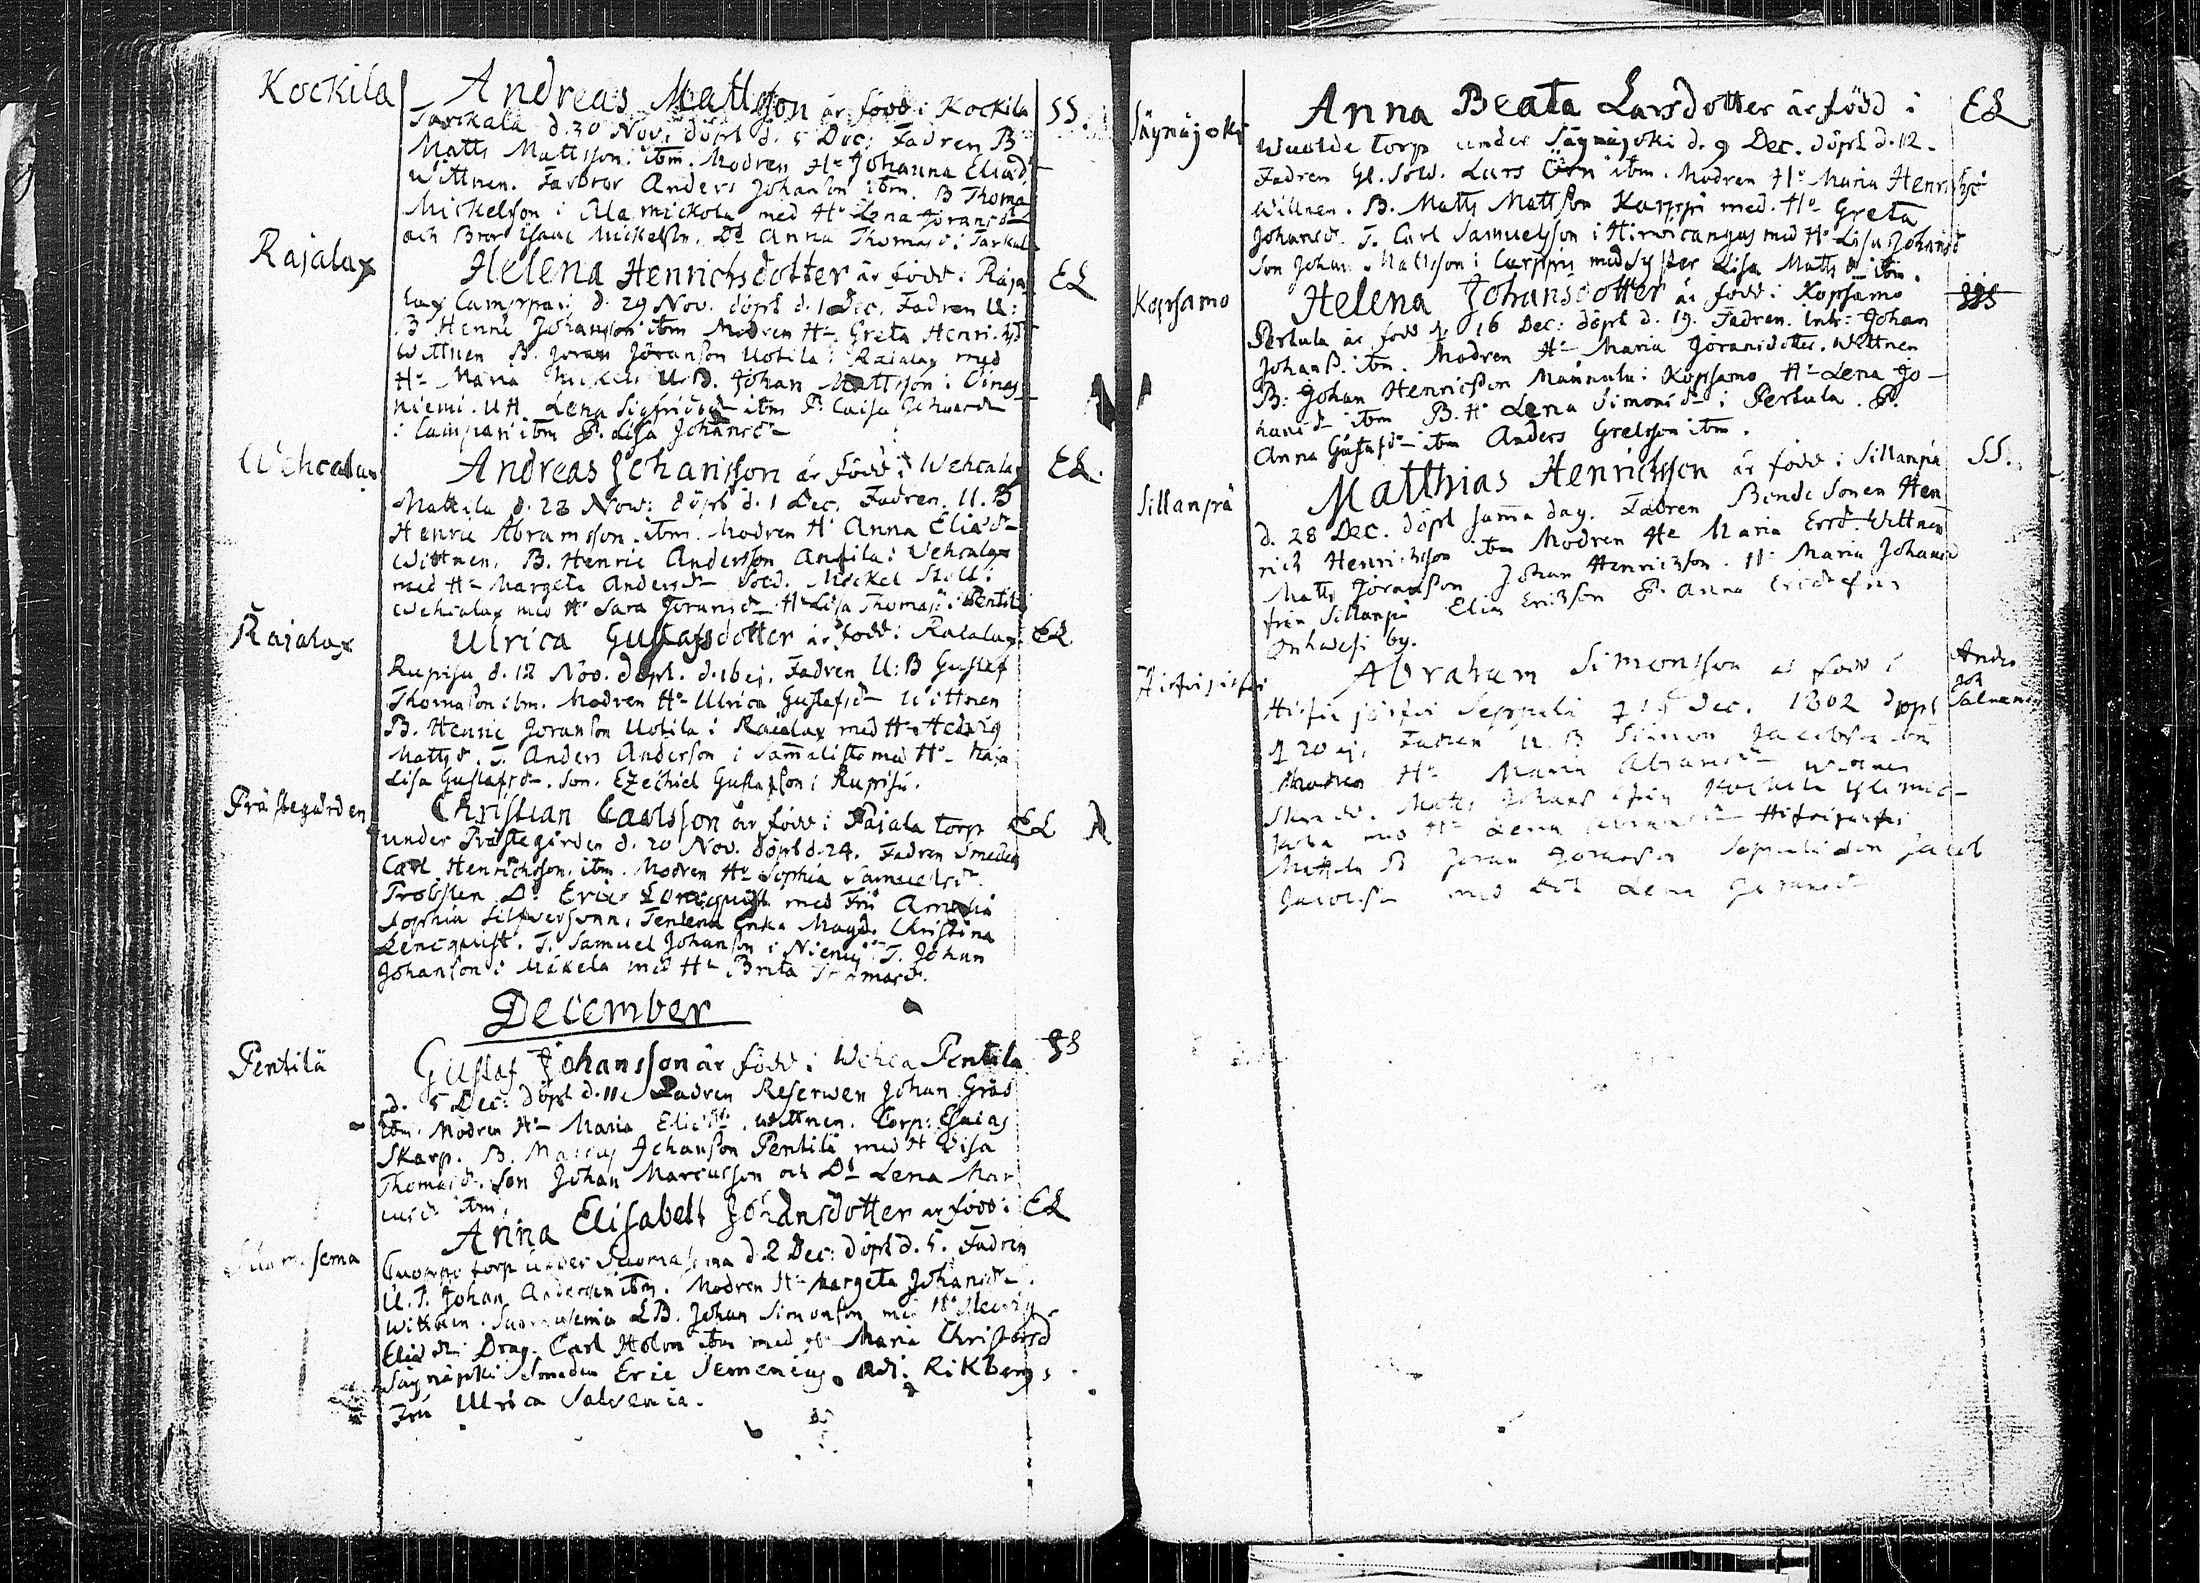 Kockila
Andreas Mattsson är född i Kockila
SS.
Tarkala d. 30 Nov. döpt d. 5 Dec: Fadren B
Matts Mattsson ibm. Modren Hu Johanna Eliæd
Wittnen. Farbror Anders Johanson ibm. B Thoma
Mickelson i Alamickola med Hu Lena Göransd
och Bror Isaac Mickelson. Dr Anna Thomasd i Tarkal
Rajalax
Helena Henrichsdotter är född i Raja
EL
lax Lamppari d. 29 Nov. döpt d. 1 Dec. Fadren U:
B Henric Johanson ibm Modren Hu Greta Henricsd
Wittnen B. Jöran Jöranson Uotila i Raialax med
Hu Maria Mickels U.B. Johan Mattsson i Oinas
niemi. UH. Lena Sigfridsd ibm P. Caisa
i Lampari ibm P. Lisa Johansd
Wehcalax
Andreas Johansson är född i Wehcalax
EL.
Mattila d. 28 Nov: döpt d. 1 Dec. Fadren. U.B
Henric Abramsson ibm. Modren H Anna Eliæd
Wittnen. B. Henric Andersson Anfila i Wehcalax
med Hu Margeta Andersd Sold. Mickel Stolt i
Wehcalax med Hu Sara Göransd Hu Lisa Thomasd i Pentilä
Rajalax
Ulrica Gustafsdotter är född i Raialax
EL
Rupisu d. 12 Nov. döpt. d. 16 ej. Fadren U:B Gustaf
Thomason ibm. Modren Hu Ulrica Gustafsd Wittnen
B. Henric Joranson Uotila i Raialax med Hu Hedwig
Mattsd. T. Anders Anderson i Sammalisto med Hu Kaja
Lisa Gustafsd. Son. Ezechiel Gustafson i Rupisu.
Prästegården
Christian Carlsson är född i Pajala torp
EL
under Prästegården d. 20 Nov. döpt d. 24. Fadren Smeden
Carl Henrichsson ibm. Modren Hu Sophia Samuelsd
Probsten Dr Eric Lencquist med Fru Amalia
Sophia Enka Magd. Christina
Lencquist. T. Samuel Johanson i Niemi T. Johan
Johanson i Mäkela med Hu Brita Thomasd.
December
Pentilä
Gustaf Johansson är född i Wehca Pentilä
SS
d. 5 Dec: döpt d. 11 Fadren Reserwen Johan Gräs
ibm. Modren Hu Maria Eliæd. Wittnen. Corp: Esaias
Skarp. B. Marcus Johanson Pentilä med H Lisa
Thomasd. Son Johan Marcusson och Dr Lena Mar
cusd ibm.
Anna Elisabeth Johansdotter är född i
EL
Cuoppo torp under Suomasema d. 2 Dec: döpt d. 5. Fadren
U.T. Johan Anderson ibm. Modren Hu Margeta Johansd.
Wittnen. Suomasema LB. Johan Simonson med Hu Hedvig
Eliæd Drag. Carl Holm ibm med Hu Maria Christersd
Säynäjoki Smeden Eric Semenius. Rikberg,
Fru Ulrica Salvenia.
Säynäjoki
Anna Beata Larsdotter är född i
EL
Wuolde torp under Säynäjoki d. 9 Dec. döpt d. 12.
Fadren Gl. Sold. Lars Örn ibm. Modren Hu Maria Henrichsd
Wittnen. B. Matts Mattson Karppi med Hu Greta
Johansd. T. Carl Samuelsson i Hirwicangas med Hu Lisa Johansd
Son Johan Mattsson i Carppis med Syster Lisa Mattsd ibm.
Kopsamo
Helena Johansdotter är född i Kopsamo
Pertula är född d. 16 Dec: döpt d. 19. Fadren. Inh: Johan
Johanß. ibm. Modren Hu Maria Göransdotter. Wittnen
B: Johan Henricsson Mannula i Kopsamo Hu Lena Jo-
hansd ibm B. Hu Lena Simonsd i Pertula. P.
Anna Gustafsd ibm Anders Grelsson ibm.
Sillanpä
Matthias Henrichsson är född i Sillanpä
SS.
d. 28 Dec. döpt samma dag. Fadren Bondesonen Hen
rich Henrichsson ibm Modren Hu Maria Ersd. Wittnen
Matts Jöransson Johan Henrichson. Hu Maria Johansd
från Sillanpä Elias Erichson P. Anna Ericsd från
Inhwesi by.
Abraham Simonsson är född i
Seppälä d 15 Dec. 1802 döpt
d 20 ej. Fadren U. B Simon Jacobsson ibm
Modren Hu Maria Abramsd Wittnen
Matts Johans från Kockila
med Hu Lena
Mattila B Jöran Seppälä Son Jacob
med Dr Lena